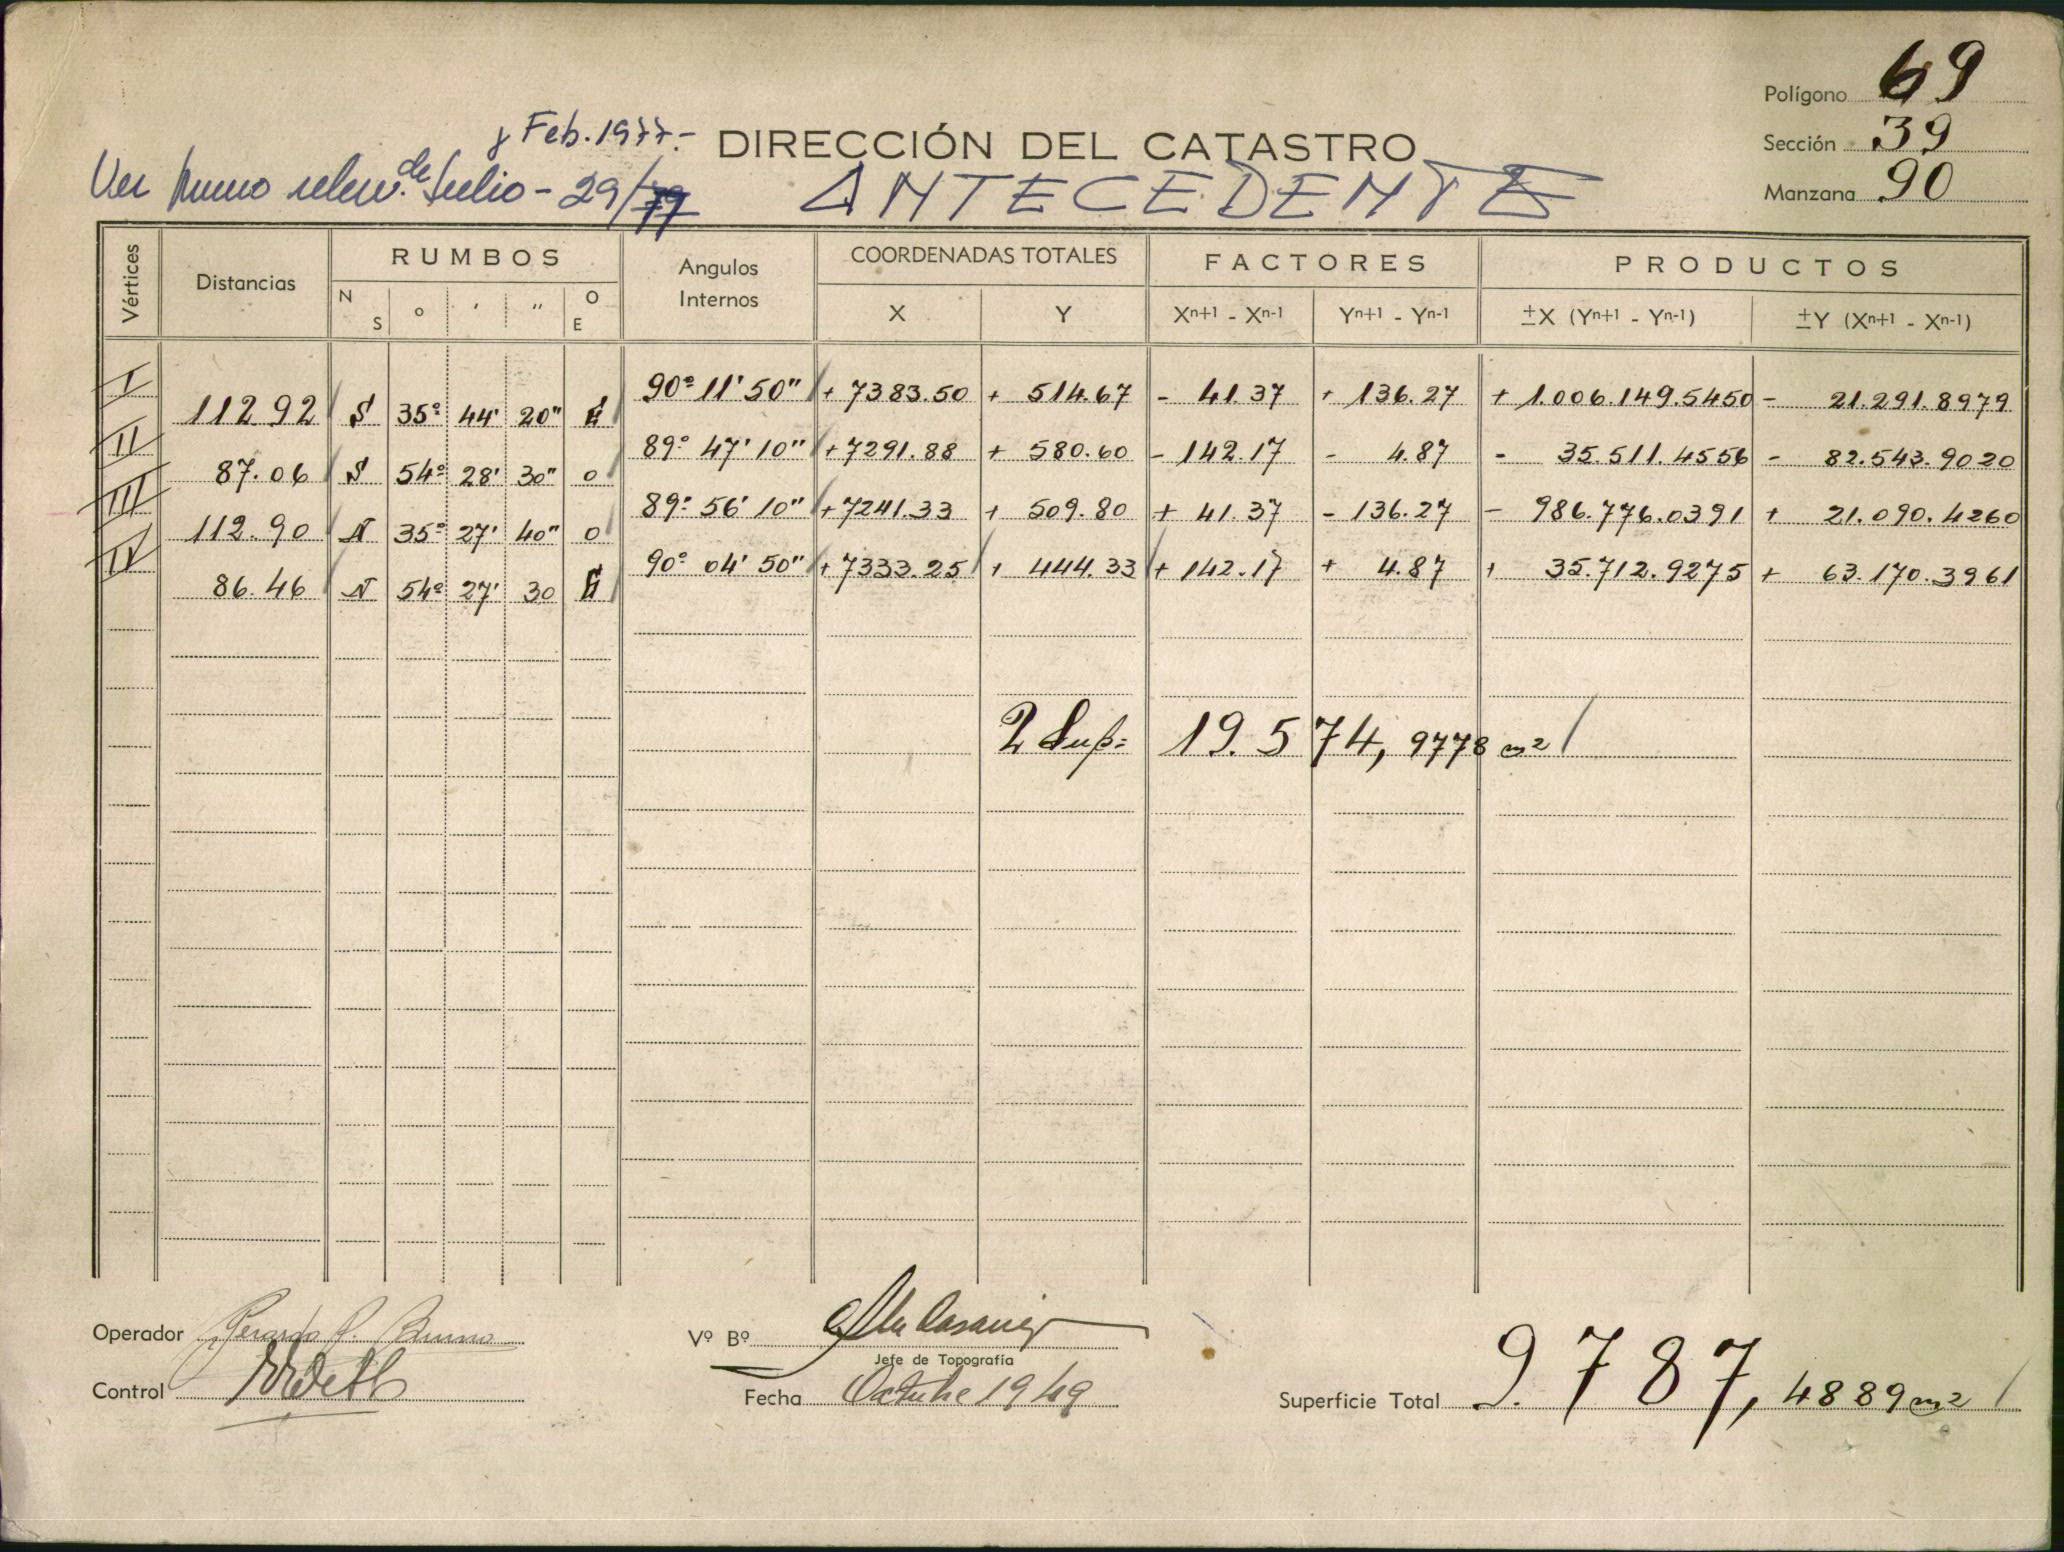 Polígono 69
y Feb. 1977.- DIRECCIÓN DEL CATASTRO
Sección 39
Ver nuevo relev. de Julio - 29/77 ANTECEDENTE
Manzana 90
Vértices Distancias RUMBOS Angulos Internos COORDENADAS TOTALES FACTORES PRODUCTOS
N S o ' " O E X Y Xn+1 - Xn-1 Yn+1 - Yn-1 ±X (Yn+1 - Yn-1) ±Y (Xn+1 - Xn-1)
I 90° 11' 50" + 7383.50 + 514.67 - 41.37 + 136.27 + 1.006.149.5450 - 21.291.8979
112.92 S 35° 44' 20" E
II 89° 47' 10" + 7291.88 + 580.60 - 142.17 - 4.87 - 35.511.4556 - 82.543.9020
87.06 S 54° 28' 30" O
III 89° 56' 10" + 7241.33 + 509.80 + 41.37 - 136.27 - 986.776.0391 + 21.090.4260
112.90 N 35° 27' 40" O
IV 90° 04' 50" + 7333.25 + 444.33 + 142.17 + 4.87 + 35.712.9275 + 63.170.3961
86.46 N 54° 27' 30 E
2 Sup= 19.574,9778 m2
Operador Gerardo P. Bruno
Vº Bº
Jefe de Topografía
Control
Fecha Octubre 1949
Superficie Total 9.787,4889 m2